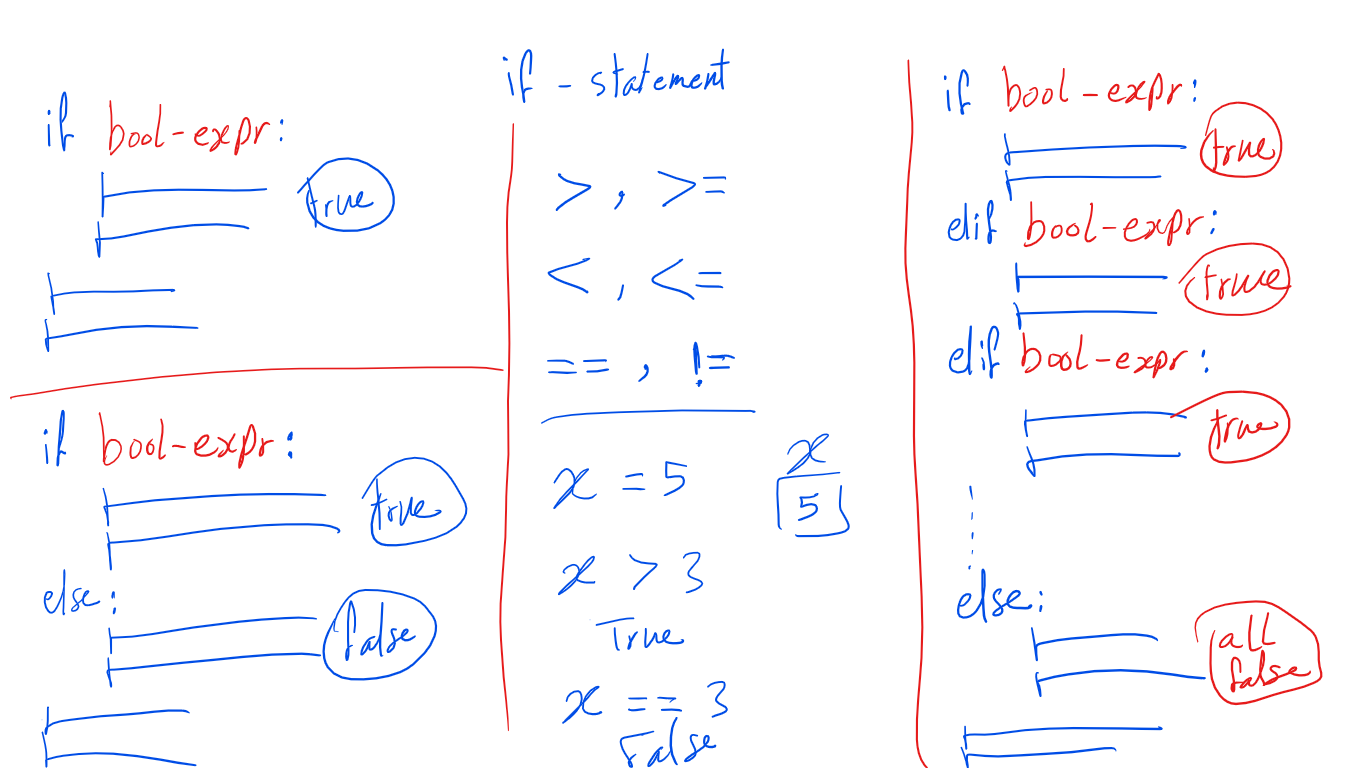 if - statement
if bool-expr:
true
if bool-expr:
true
else:
false
> , >=
< , <=
== , !=
x = 5
x
5
x > 3
True
x == 3
False
if bool-expr:
true
elif bool-expr:
true
elif bool-expr:
true
else:
all
false